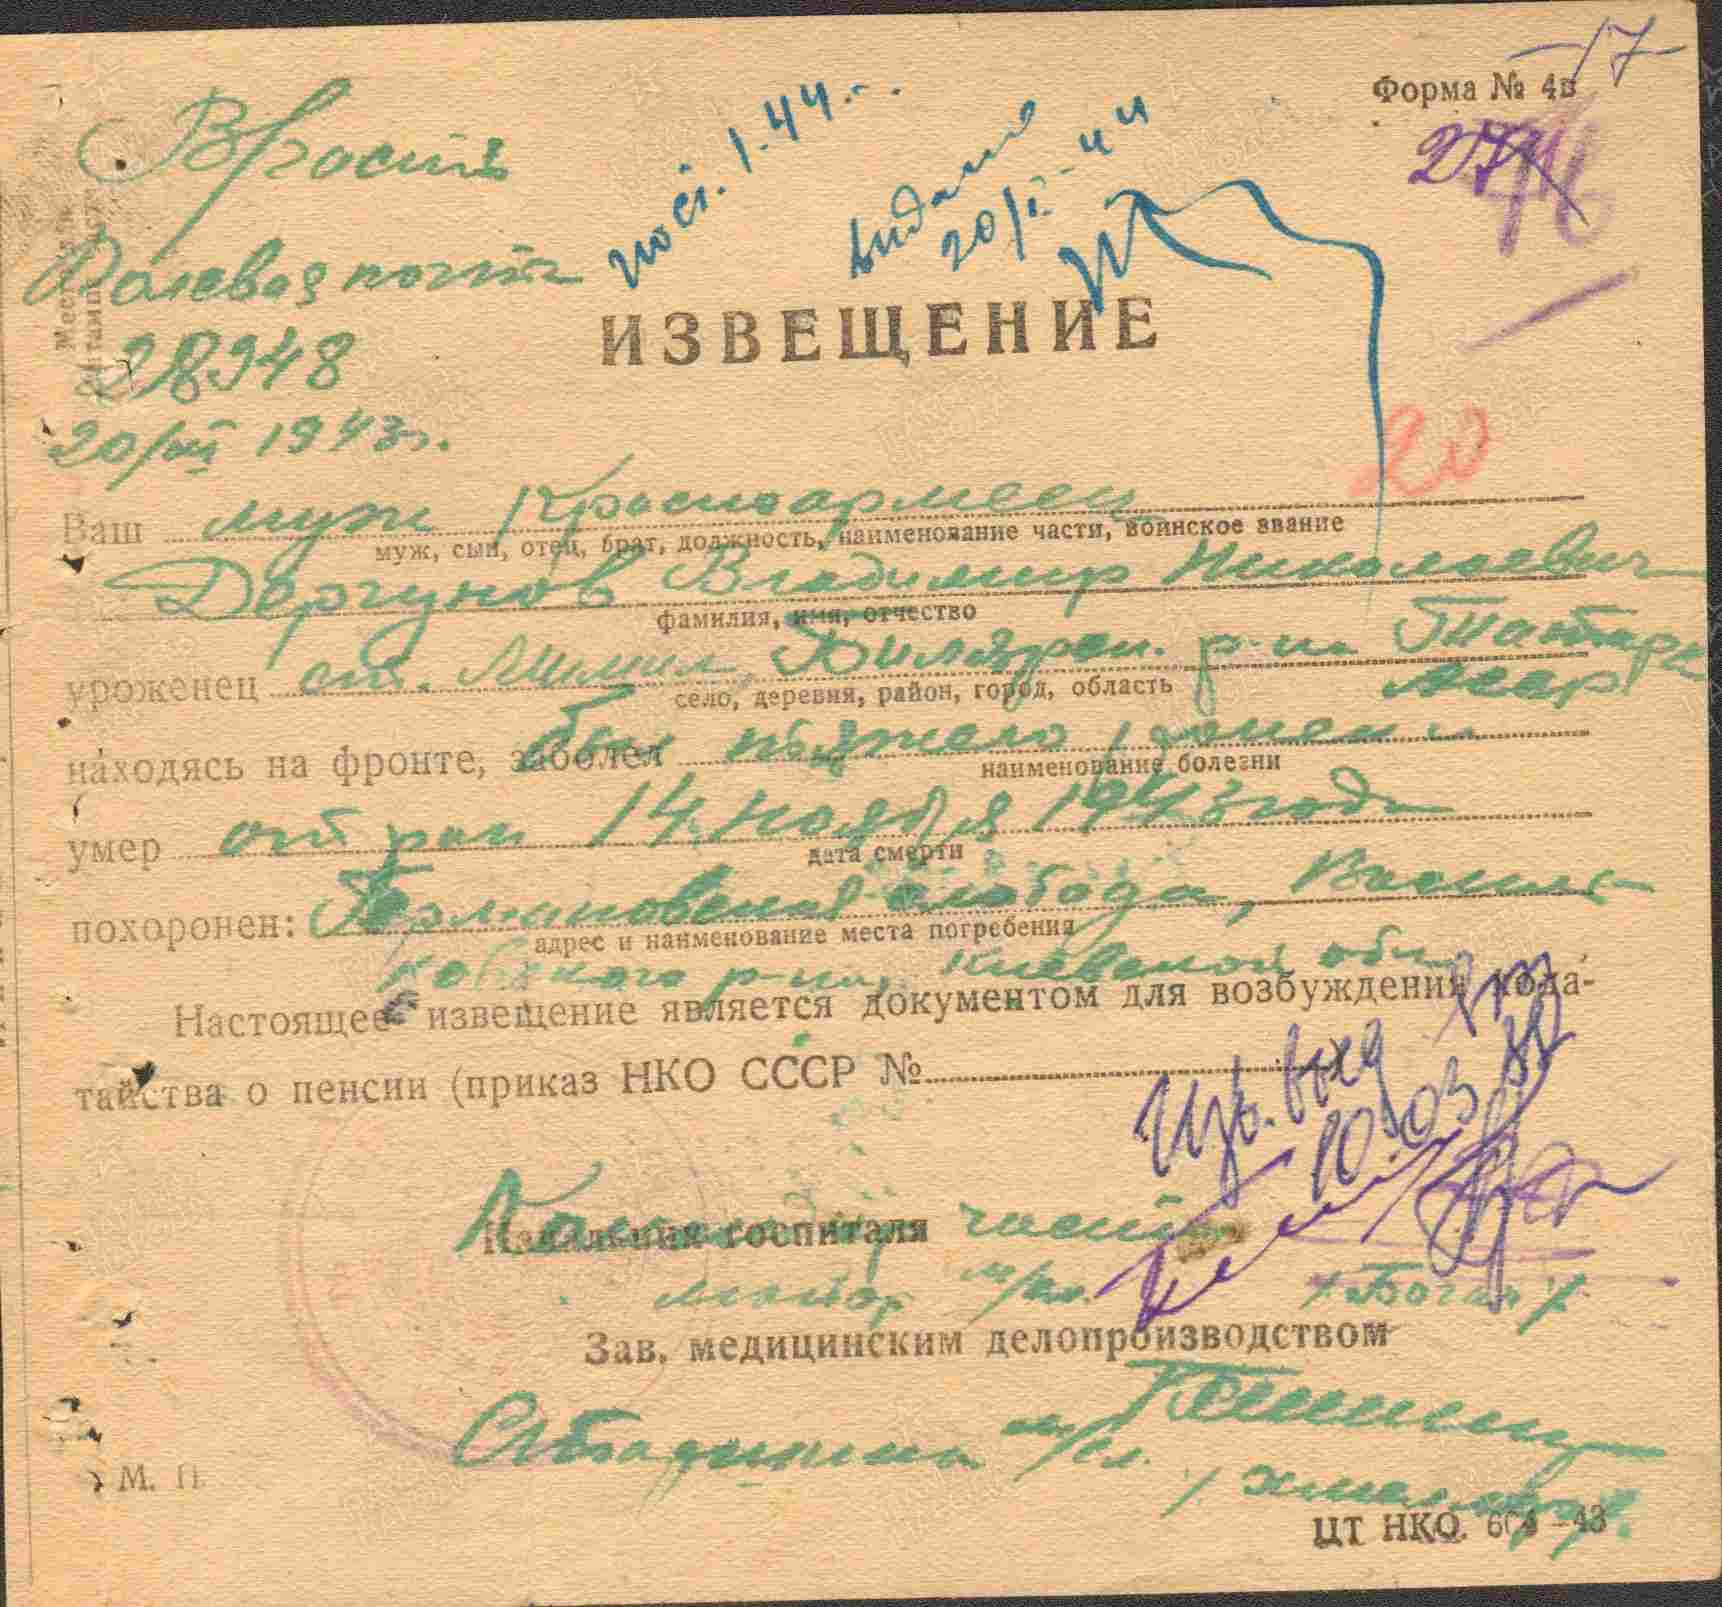 17
Форма № 4в
27
В/часть
пост. 1.44
выдано
20/I-44
Место для
штампа
Полевая почта
28948
20/XII 1943 г.
ИЗВЕЩЕНИЕ
20
Ваш муж Красноармеец
муж, сын, отец, брат, должность, наименование части, воинское звание
Дергунов Владимир Николаевич
фамилия, имя, отчество
уроженец ст. Билярск. р-на Татарск
село, деревня, район, город, область
АССР
находясь на фронте, заболел был тяжело ранен и
наименование болезни
умер от ран 14 ноября 1943 года
дата смерти
похоронен: Германовская слобода, Василь-
адрес и наименование места погребения
ковского р-на, Киевской обл.
Настоящее извещение является документом для возбуждения хода-
тайства о пенсии (приказ НКО СССР №
Изв.
10.03
Начальник госпиталя
Командир части
майор м/сл. /Боган/
Зав. медицинским делопроизводством
Ст. м/сл.
М. П.
ЦТ НКО. 604-43